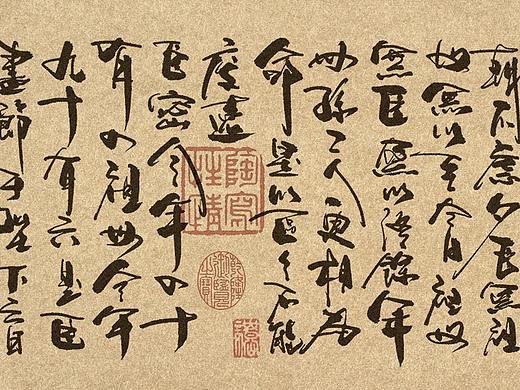 朝不慮夕臣無祖
母無以至今日祖母
無臣無以終餘年
母孫二人更相為
命是以區々不能
廢遠
臣密今年四十
有四祖母今年
九十有六是臣
盡節于陛下之日
陶寫性情